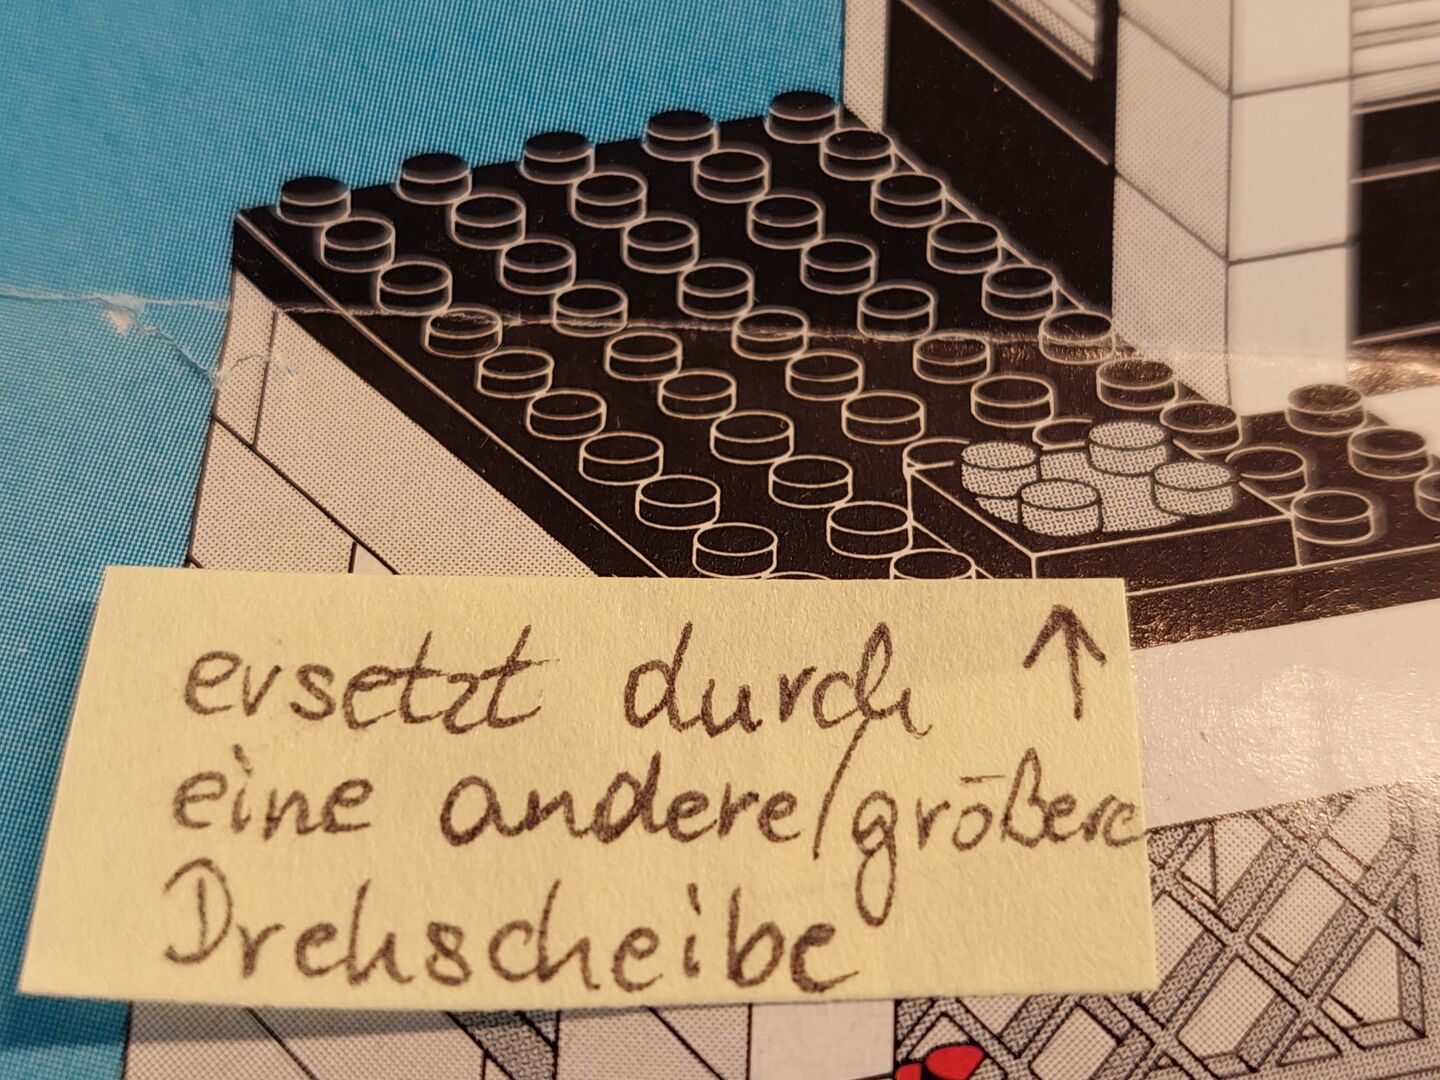 ersetzt durch ↑
eine andere/größere
Drehscheibe